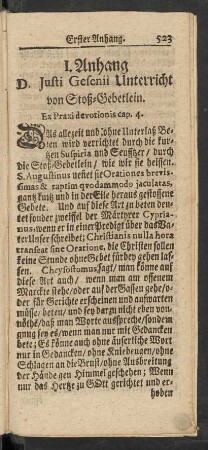 Erster Anhang. 523
I. Anhang
D. Justi Gesenii Unterricht
von Stoß-Gebetlein.
Ex Praxi devotionis cap. 4.
Das allezeit und ohne Unterlaß Be-
ten wird verrichtet durch die kur-
tzen Suspiria und Seufftzer / durch
die Stoß-Gebetlein / wie wir sie heissen.
S. Augustinus nennet sie Orationes brevis-
simas & raptim quodammodo jaculatas,
gantz kurtz und in der Eile heraus geschossene
Gebete. Und auf diese Art zu beten deu-
tet sonder zweiffel der Märtyrer Cypria-
nus, wenn er in einer Predigt über das Va-
ter Unser schreibet: Christianis nulla hora
transeat sine Oratione, die Christen sollen
keine Stunde ohne Gebet fürbey gehen las-
sen. Chrysostomus sagt / man könne auf
diese Art auch / wenn man am offenem
Marckte stehe / oder auf der Gassen gehe / o-
der für Gerichte erscheinen und aufwarten
müsse / beten / und sey darzu nicht eben von-
nöthē / daß man Worte ausspreche / sondern
gnug sey es / wenn man nur mit Gedancken
bete; Es könne auch ohne äuserliche Wort
nur in Gedancken / ohne Kniebeugen / ohne
Schlagen an die Brust / ohne Ausbreitung
der Hände gen Himmel geschehen; Wenn
nur das Hertze zu GOtt gerichtet und er-
hoben